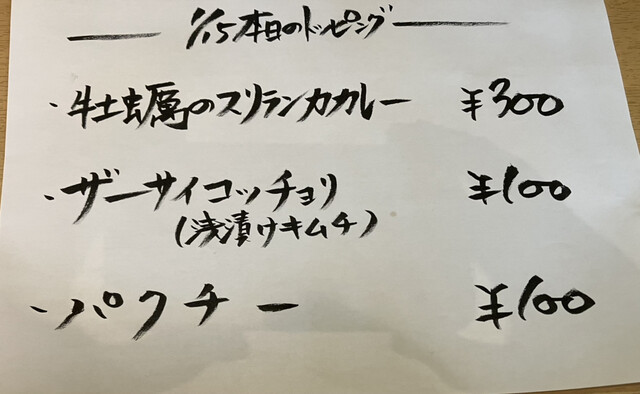 1/15本日のトッピング
・牡蠣のスリランカカレー ¥300
・ザーサイコッチョリ ¥100
(浅漬けキムチ)
・パクチー ¥100